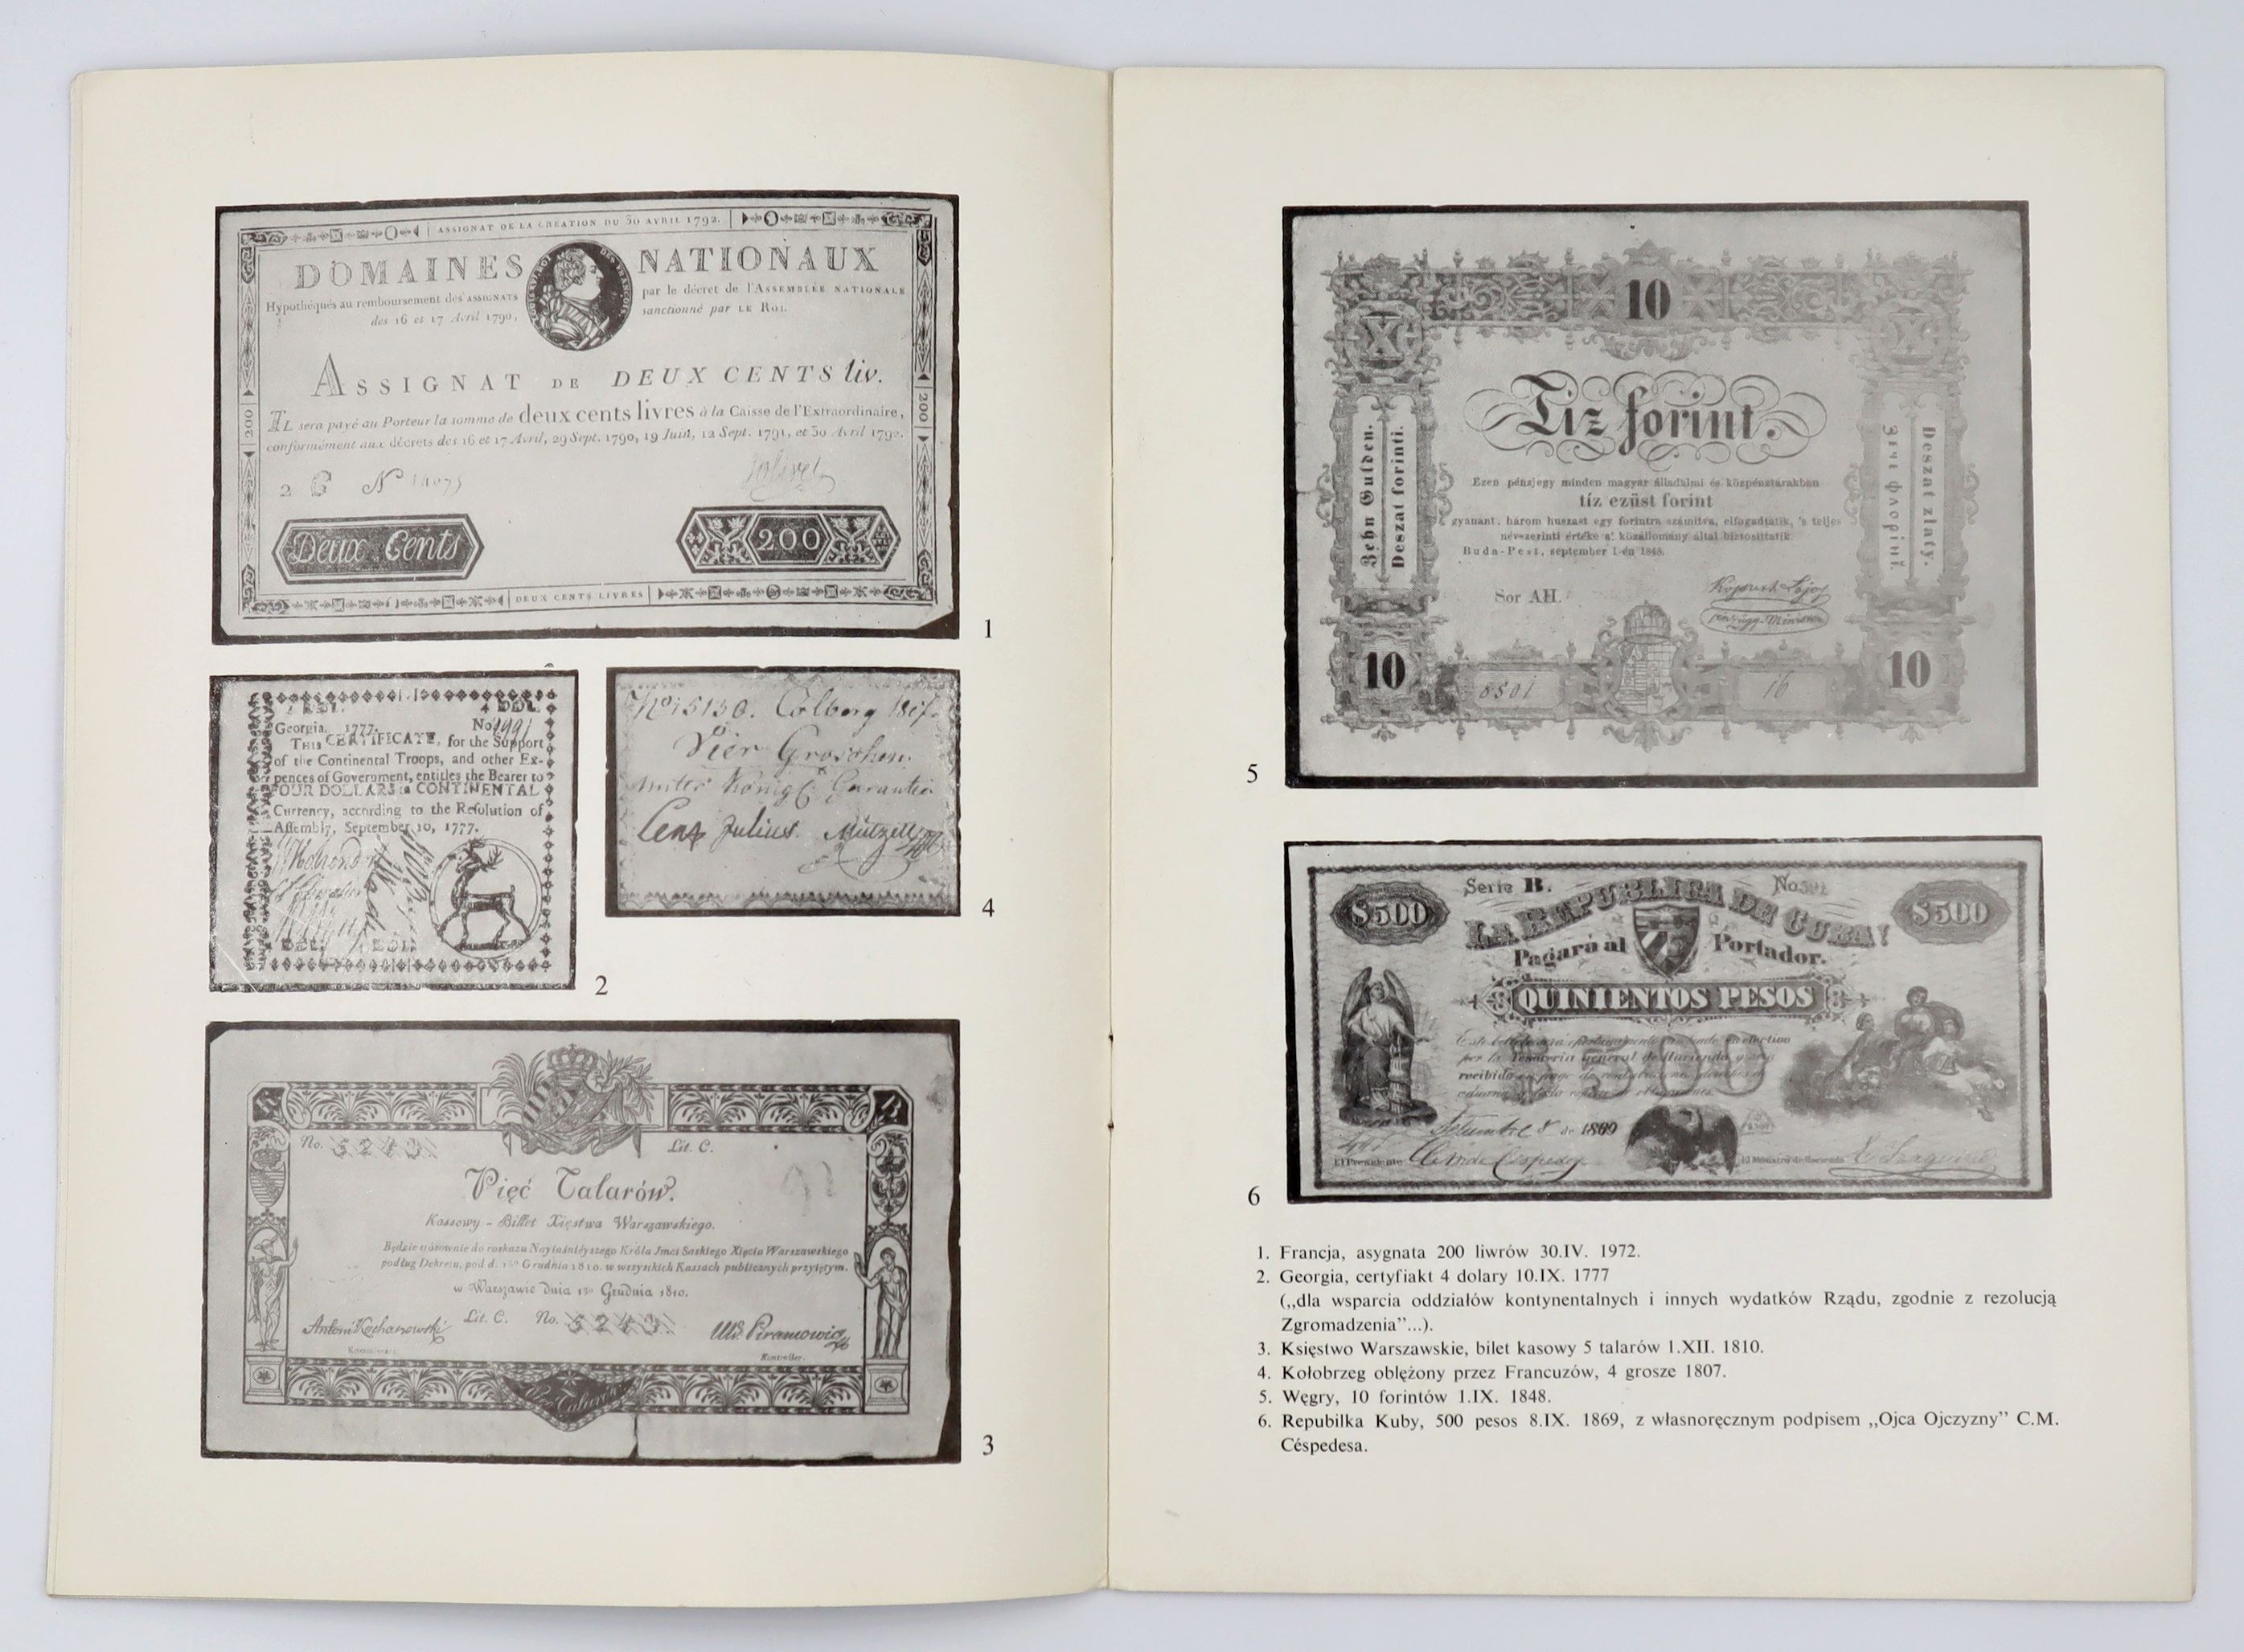 ASSIGNAT DE LA CRÉATION DU 30 AVRIL 1792.
DOMAINES NATIONAUX
Hypothéqués au remboursement des ASSIGNATS
des 16 et 17 Avril 1790,
par le décret de l'ASSEMBLÉE NATIONALE
sanctionné par LE ROI.
ASSIGNAT DE DEUX CENTS liv.
IL sera payé au Porteur la somme de deux cents livres à la Caisse de l'Extraordinaire,
conformément aux décrets des 16 et 17 Avril, 29 Sept. 1790, 19 Juin, 12 Sept. 1791, et 30 Avril 1792.
200
200
2 G N
Deux Cents
200
DEUX CENTS LIVRES
1
4 DOL.
Georgia. 1777. No
THIS CERTIFICATE, for the Support
of the Continental Troops, and other Ex-
pences of Government, entitles the Bearer to
FOUR DOLLARS in CONTINENTAL
Currency, according to the Resolution of
Assembly, September 10, 1777.
2
No 15130. Colberg 1807.
Vier Groschen
unter Königl. Garantie
Cens Julius. Mützell
4
No. 5243 Lit. C.
Pięć Talarów.
Kassowy - Billet Xięstwa Warszawskiego.
Będzie w Massie do roskazu Nayiaśnieyszego Króla Jmci Saskiego Xięcia Warszawskiego
podług Dekretu, pod d. 1go Grudnia 1810. w wszystkich Kassach publicznych przyiętym.
w Warszawie Dnia 1go Grudnia 1810.
Antoni Kochanowski Lit. C. No. 5243 Piramowicz
Kommissarz Kontroller.
3
10
X X
Tíz forint.
Zehn Gulden.
Deszat forinti.
Deszat zlaty.
Ezen pénzjegy minden magyar álladalmi és közpénztárakban
tíz ezüst forint
gyanánt, három huszast egy forintra számítva, elfogadtatik, 's teljes
névszerinti értéke a' közállomány által biztosíttatik.
Buda-Pest, september 1-én 1848.
Sor AH.
Kossuth Lajos
10 8501 16 10
5
Serie B. No 591
$500 $500
LA REPUBLICA DE CUBA
Pagará al Portador.
QUINIENTOS PESOS
por la Tesoreria general de Hacienda y será
500
8 de 1869
El Presidente
El Ministro de Hacienda
6
1. Francja, asygnata 200 liwrów 30.IV. 1972.
2. Georgia, certyfiakt 4 dolary 10.IX. 1777
(„dla wsparcia oddziałów kontynentalnych i innych wydatków Rządu, zgodnie z rezolucją
Zgromadzenia”...).
3. Księstwo Warszawskie, bilet kasowy 5 talarów 1.XII. 1810.
4. Kołobrzeg oblężony przez Francuzów, 4 grosze 1807.
5. Węgry, 10 forintów 1.IX. 1848.
6. Repubilka Kuby, 500 pesos 8.IX. 1869, z własnoręcznym podpisem „Ojca Ojczyzny” C.M.
Céspedesa.